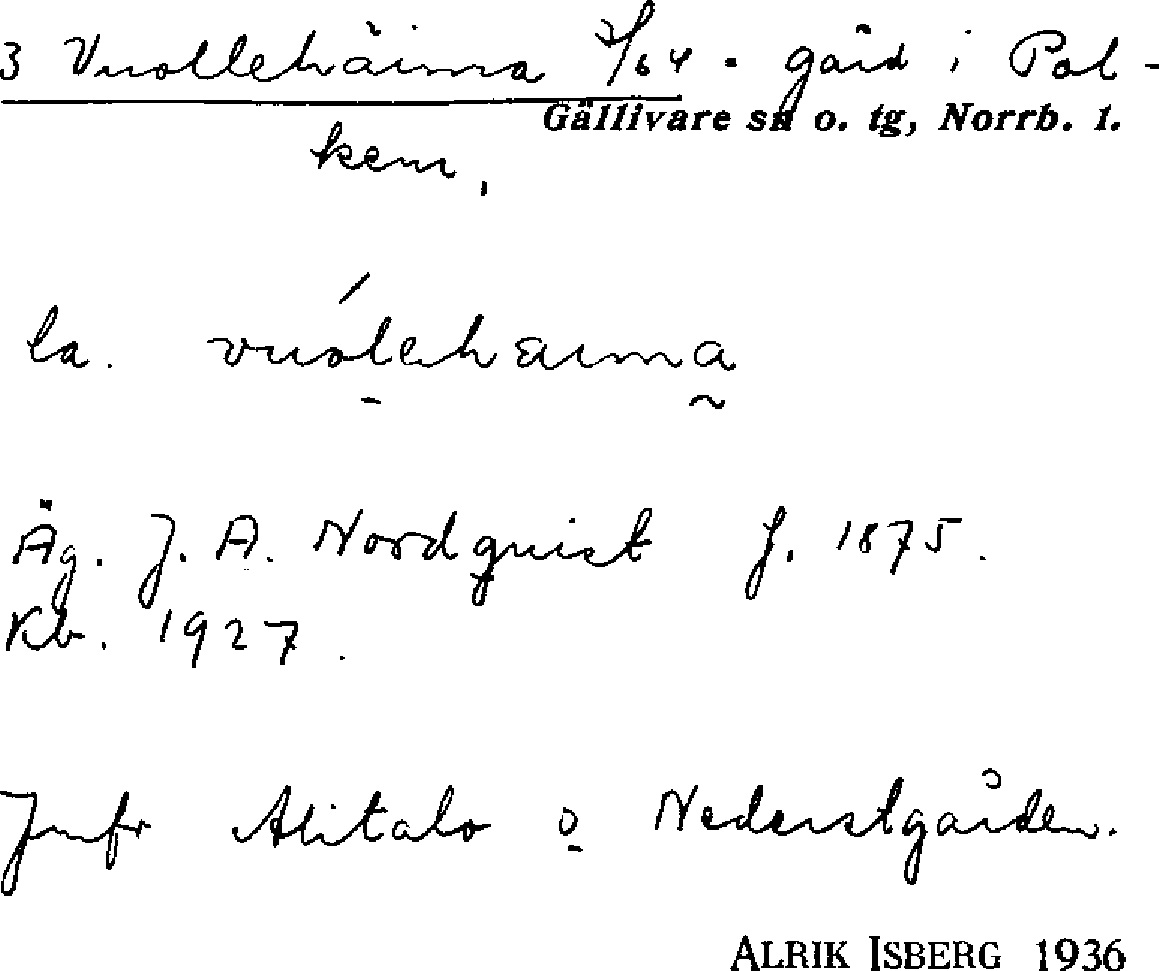 3 Vuollehäima 3/64 - gård i Pol-
Gällivare sn o. tg, Norrb. l.
kem.
la. vuólehaima
Äg. J. A. Nordquist f. 1875.
Kb. 1927.
Jmfr Alitalo o Nederstgården.
ALRIK ISBERG 1936